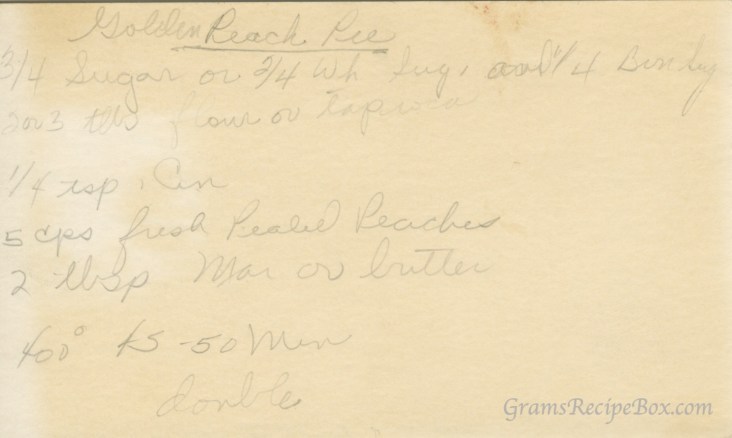 Golden Peach Pie
3/4 Sugar or 3/4 Wh Sug, and 1/4 Brn Sug
2 or 3 tbs flour or tapioca
1/4 tsp, Cin
5 cps fresh Pealed Peaches
2 tbsp Mar or butter
400° 45-50 Min
double
GramsRecipeBox.com